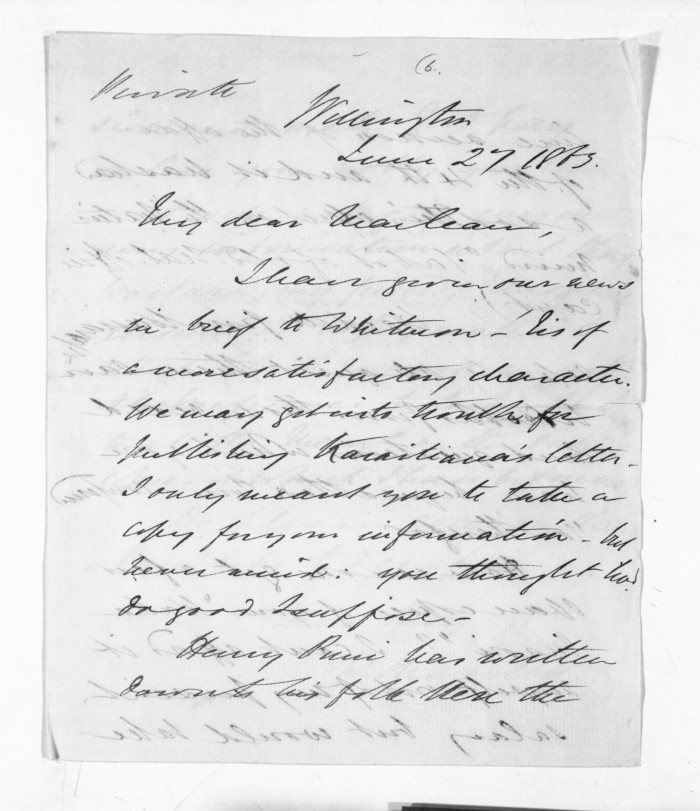 (6.
Private
Wellington
June 27 1863.
My dear Maclean,
I have given our news
in brief to Whitmore - 'Tis of
a more satisfactory character.
We may get into trouble for
publishing Karaitiana's letter -
I only meant you to take a
copy for your information - but
never mind: you thought 'twd.
do good I suppose -
Henry has written
down to his folk here the